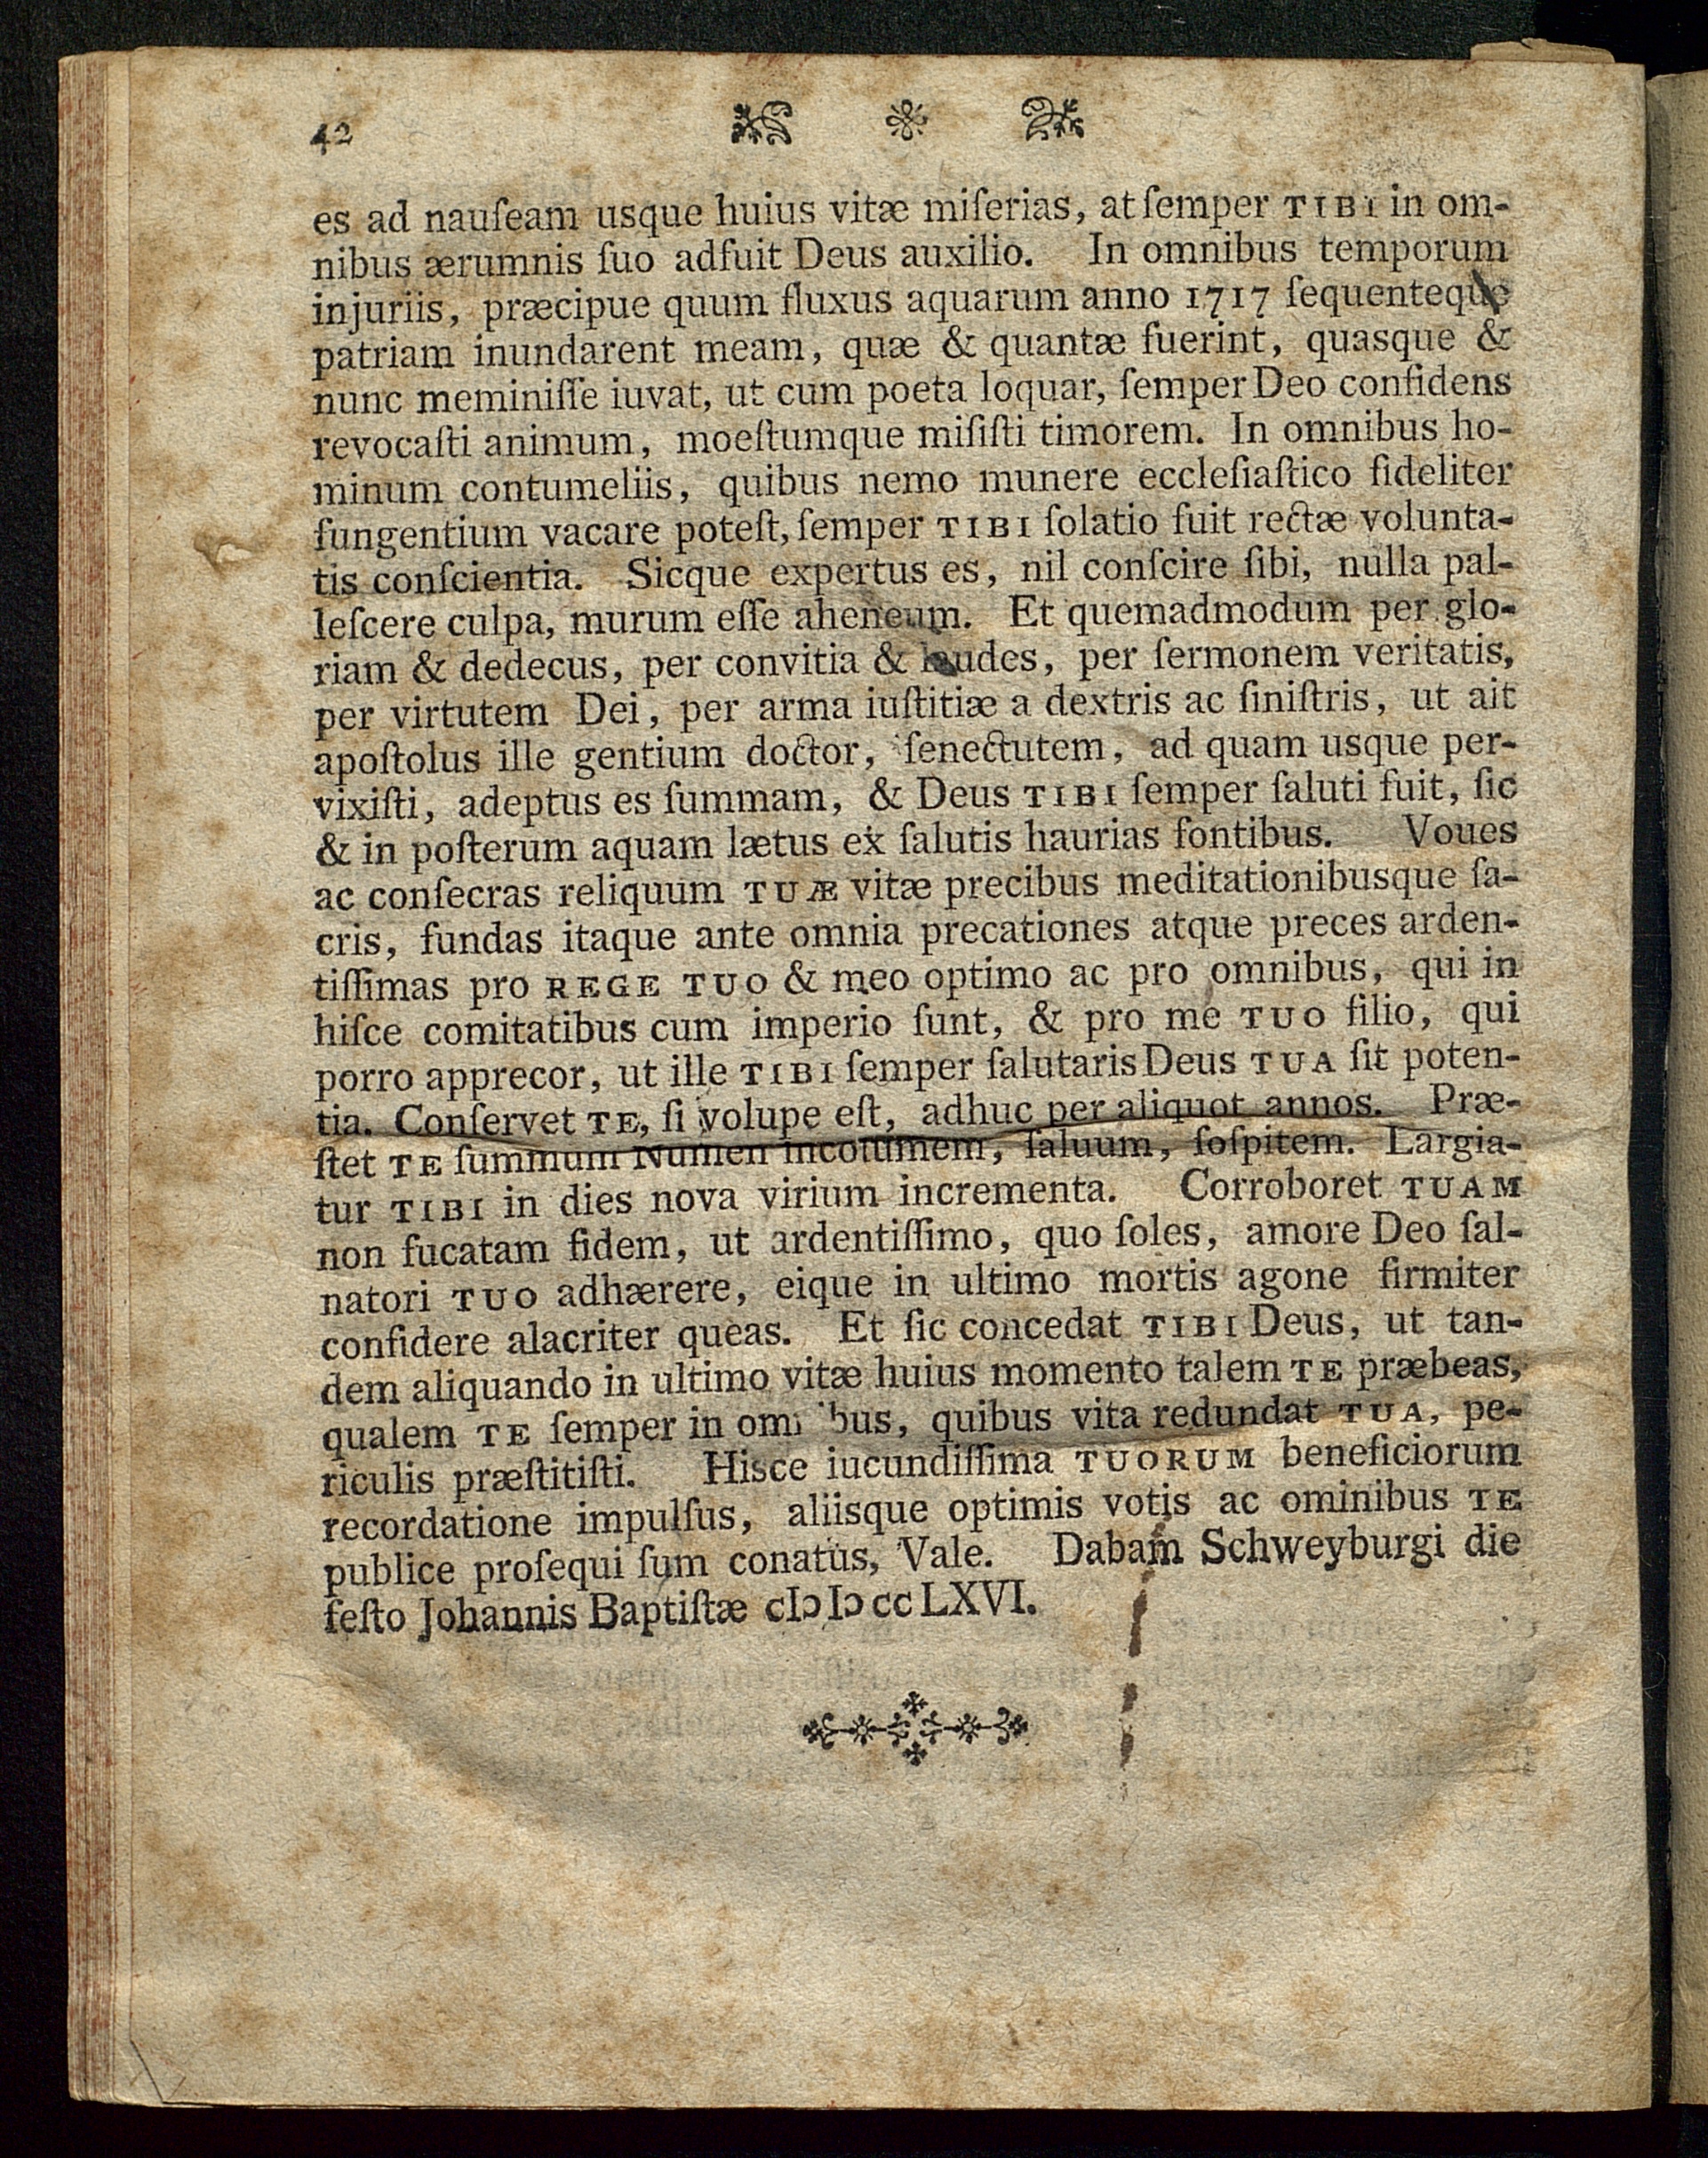 42
es ad nauſeam usque huius vitæ miſerias, at ſemper TIBI in om-
nibus ærumnis ſuo adfuit Deus auxilio. In omnibus temporum
injuriis, præcipue quum fluxus aquarum anno 1717 ſequenteque
patriam inundarent meam, quæ & quantæ fuerint, quasque &
nunc meminiſſe iuvat, ut cum poeta loquar, ſemper Deo confidens
revocaſti animum, moeſtumque miſiſti timorem. In omnibus ho-
minum contumeliis, quibus nemo munere eccleſiaſtico fideliter
fungentium vacare poteſt, ſemper TIBI ſolatio fuit rectæ volunta-
tis conſcientia. Sicque expertus es, nil conſcire ſibi, nulla pal-
leſcere culpa, murum eſſe aheneum. Et quemadmodum per glo-
riam & dedecus, per convitia & laudes, per ſermonem veritatis,
per virtutem Dei, per arma iuſtitiæ a dextris ac ſiniſtris, ut ait
apoſtolus ille gentium doctor, ſenectutem, ad quam usque per-
vixiſti, adeptus es ſummam, & Deus TIBI ſemper ſaluti fuit, ſic
& in poſterum aquam lætus ex ſalutis haurias fontibus. Voues
ac conſecras reliquum TUÆ vitæ precibus meditationibusque ſa-
cris, fundas itaque ante omnia precationes atque preces arden-
tiſſimas pro REGE TUO & meo optimo ac pro omnibus, qui in
hiſce comitatibus cum imperio ſunt, & pro me TUO filio, qui
porro apprecor, ut ille TIBI ſemper ſalutaris Deus TUA ſit poten-
tia. Conſervet TE, ſi volupe eſt, adhuc per aliquot annos. Præ-
ſtet TE ſummum Numen incolumem, ſaluum, ſoſpitem. Largia-
tur TIBI in dies nova virium incrementa. Corroboret TUAM
non fucatam fidem, ut ardentiſſimo, quo ſoles, amore Deo ſal-
natori TUO adhærere, eique in ultimo mortis agone firmiter
confidere alacriter queas. Et ſic concedat TIBI Deus, ut tan-
dem aliquando in ultimo vitæ huius momento talem TE præbeas,
qualem TE ſemper in omnibus, quibus vita redundat TUA, pe-
riculis præſtitiſti. Hisce iucundiſſima TUORUM beneficiorum
recordatione impulſus, aliisque optimis votis ac ominibus TE
publice proſequi ſum conatus, Vale. Dabam Schweyburgi die
feſto Johannis Baptiſtæ cIɔ Iɔ cc LXVI.